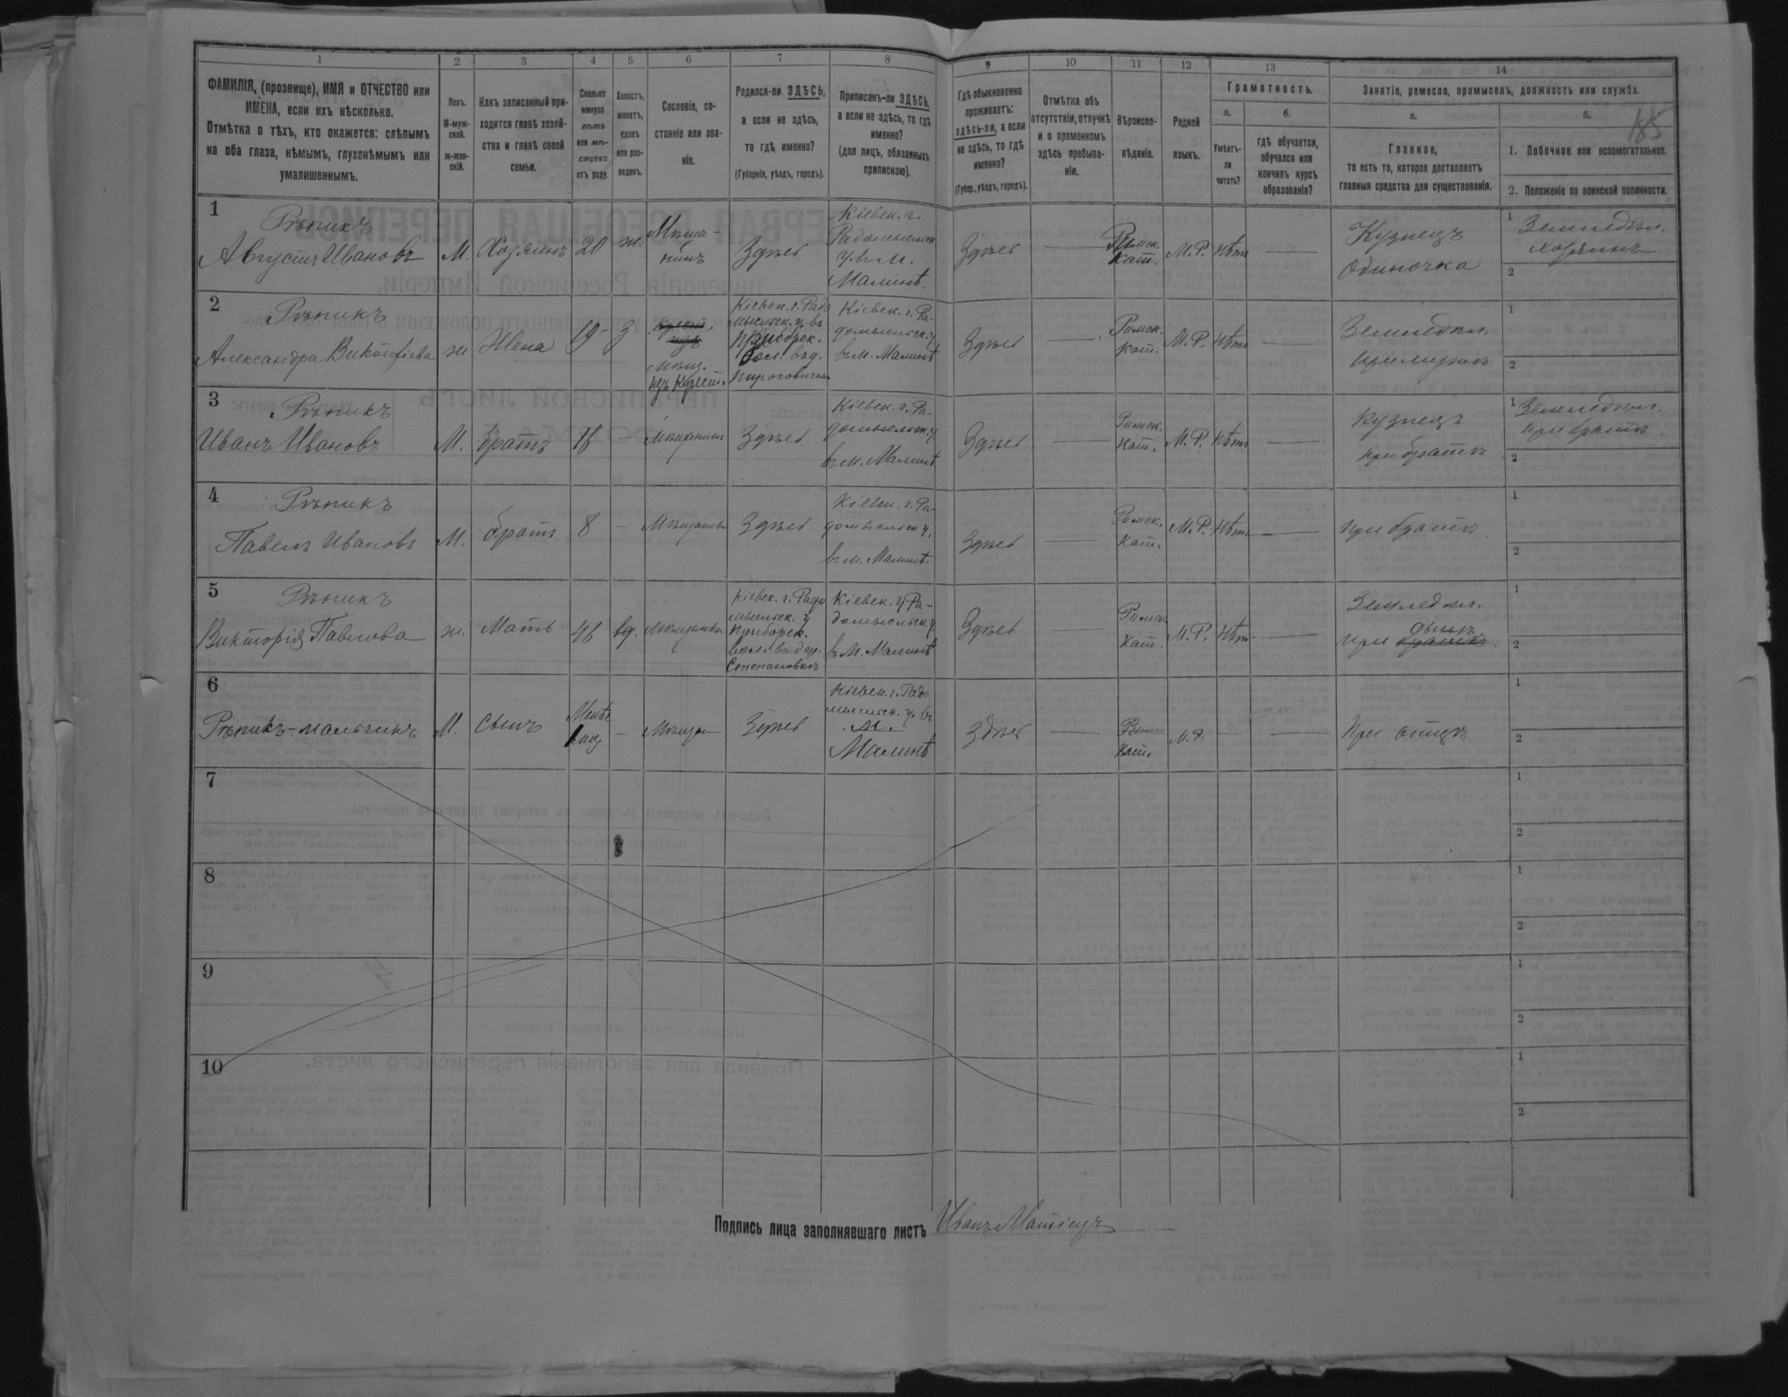 1 2 3 4 5 6 7 8 9 10 11 12 13 14
ФАМИЛІЯ, (прозвище), ИМЯ и ОТЧЕСТВО или
ИМЕНА, если ихъ нѣсколько.
Отмѣтка о тѣхъ, кто окажется: слѣпымъ
на оба глаза, нѣмымъ, глухонѣмымъ или
умалишеннымъ.
Полъ.
М-муж-
ской.
ж-жен-
скій.
Какъ записанный при-
ходится главѣ хозяй-
ства и главѣ своей
семьи.
Сколько
минуло
лѣтъ
или мѣ-
сяцевъ
отъ роду.
Холостъ,
женатъ,
вдовъ
или раз-
веденъ.
Сословіе, со-
стояніе или зва-
ніе.
Родился-ли ЗДѢСЬ,
а если не здѣсь,
то гдѣ именно?
(Губернія, уѣздъ, городъ).
Приписанъ-ли ЗДѢСЬ,
а если не здѣсь, то гдѣ
именно?
(для лицъ, обязанныхъ
припискою).
Гдѣ обыкновенно
проживаетъ:
здѣсь-ли, а если
не здѣсь, то гдѣ
именно?
(Губер., уѣздъ, городъ).
Отмѣтка объ
отсутствіи, отлучкѣ
и о временномъ
здѣсь пребыва-
ніи.
Вѣроиспо-
вѣданіе.
Родной
языкъ.
Грамотность.
а.
Умѣетъ-
ли
читать?
б.
гдѣ обучается,
обучался или
кончилъ курсъ
образованія?
Занятіе, ремесло, промыселъ, должность или служба.
а.
Главное,
то есть то, которое доставляетъ
главныя средства для существованія.
б.
185
1. Побочное или вспомогательное.
2. Положеніе по воинской повинности.
1
Рѣпикъ
Августъ Ивановъ
М.
Хозяинъ
20
ж.
Мѣща-
нинъ
Здѣсь
Кіевск. г.
Радомысльск.
у. в. м.
Малинѣ.
Здѣсь
Римск.
Кат.
М. Р.
Нѣтъ
Кузнецъ
Одиночка
1 Земледѣл.
хозяинъ
2
2
Рѣпикъ
Александра
ж
Жена
19
З
Мѣщ.
изъ Крест.
Кіевск. г. Радо
мысльск. у. въ
Кіевск. г. Ра-
домысльск. у.
въ м. Малинѣ
Здѣсь
Римск.
Кат.
М. Р.
Нѣтъ
Земледѣл.
при мужѣ
1
2
3
Рѣпикъ
Иванъ Ивановъ
М.
братъ
Мѣщанинъ
Здѣсь
Кіевск. г. Ра-
домысльск. у.
въ м. Малинѣ
Здѣсь
Римск.
Кат.
М. Р.
Нѣтъ
Кузнецъ
при братѣ
1 Земледѣл.
при братѣ.
2
4
Рѣпикъ
Павелъ Ивановъ
М.
братъ
8
Мѣщанинъ
Здѣсь
Кіевск. г. Ра-
домысльск. у.
въ м. Малинѣ.
Здѣсь
Римск.
Кат.
М. Р.
Нѣтъ
при братѣ.
1
2
5
Рѣпикъ
Викторія Павлова
ж.
Мать
вд.
Мѣщанка
Кіевск. г. Радо
мысльск. у
Приборск.
вол. въ дер.
Степановкѣ
Кіевск. г. Ра-
домысльск. у
въ м. Малинѣ
Здѣсь
Римск.
Кат.
М. Р.
Нѣтъ
Земледѣл.
при сынѣ
1
2
6
Рѣпикъ-мальчикъ
М.
сынъ
Мѣщан
Здѣсь
Кіевск. г. Радо
мысльск. у. въ
м.
Малинѣ
Здѣсь
Римск.
Кат.
М. Р.
при отцѣ
1
2
7
1
2
8
1
2
9
1
2
10
1
2
Подпись лица заполнявшаго листъ Иванъ